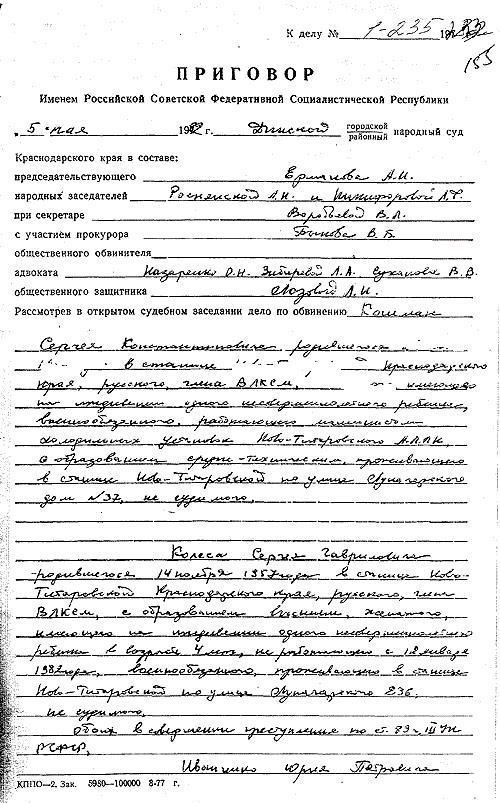 К делу № 1-235 1982
155
ПРИГОВОР
Именем Российской Советской Федеративной Социалистической Республики
5 мая 1982 г. Динской городской районный народный суд
Краснодарского края в составе:
председательствующего Ермакова А.И.
народных заседателей А.Н. и Никифоровой Л.Ф.
при секретаре Воробьевой В.Л.
с участием прокурора Быкова В.Б.
общественного обвинителя
адвоката Назаренко О.Н. Л.А. Суханова В.В.
общественного защитника Лозовой Л.И.
Рассмотрев в открытом судебном заседании дело по обвинению Кошман
Сергея Константиновича родившегося
в станице Краснодарского
края, русского, члена ВЛКСМ, имеющего
на иждивении одного несовершеннолетнего ребенка,
военнообязанного, работающего машинистом
холодильных установок Ново-Титаровского
с образованием средне-техническим, проживающего
в станице Ново-Титаровской по улице Луначарского
дом № 37, не судимого,
Колеса Сергея Гавриловича
родившегося 14 ноября 1957 года в станице Ново-
Титаровской Краснодарского края, русского, член
ВЛКСМ, с образованием высшим, женатого,
имеющего на иждивении одного несовершеннолетнего
ребенка в возрасте 4 мес, не работающего с 18 января
1982 года, военнообязанного, проживающего в станице
Ново-Титаровской по улице Луначарского 236,
не судимого,
обоих в совершении преступления по ст. 89 ч. III УК
РСФСР,
Иващенко Юрия Петровича
КППО—2. Зак. 5980—100000 8-77 г.